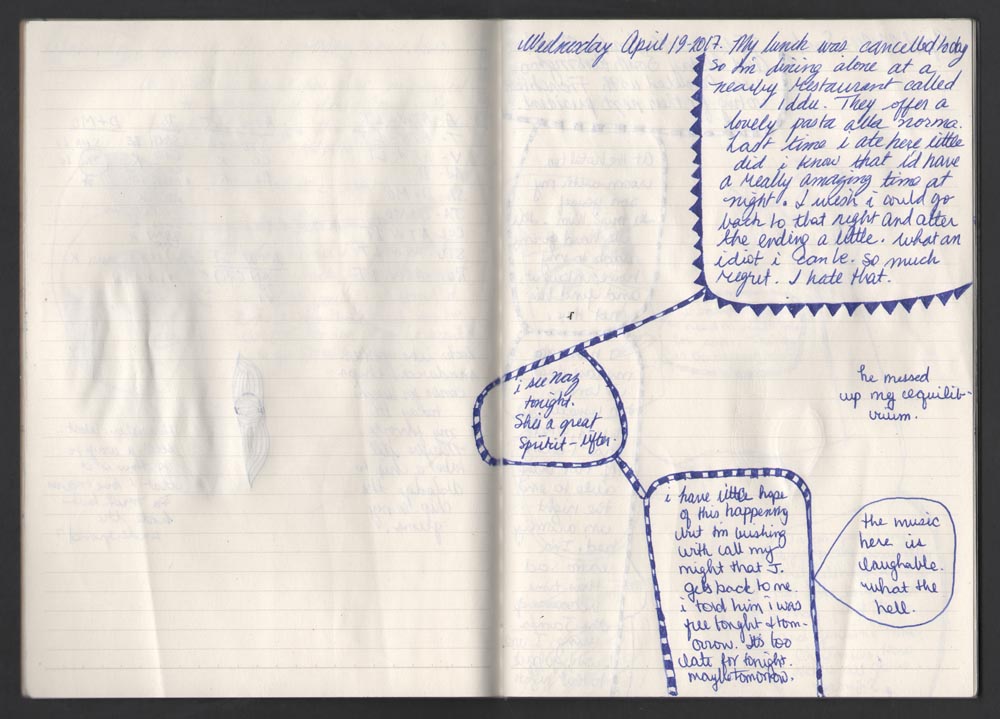 Wednesday April 19-2017. My lunch was cancelled today
so i'm dining alone at a
nearby restaurant called
Iddu. They offer a
lovely pasta alla norma.
Last time i ate here little
did i know that i'd have
a really amazing time at
night. I wish i could go
back to that night and alter
the ending a little. what an
idiot i can be. so much
regret. I hate that.
i see naz
tonight.
She's a great
Spirit-lifter.
he messed
up my equilib-
rium.
i have little hope
of this happening
but i'm wishing
with call my
might that J.
gets back to me.
i told him i was
free tonight & tom-
orrow. It's too
late for tonight.
maybe tomorrow.
the music
here is
laughable.
what the
hell.